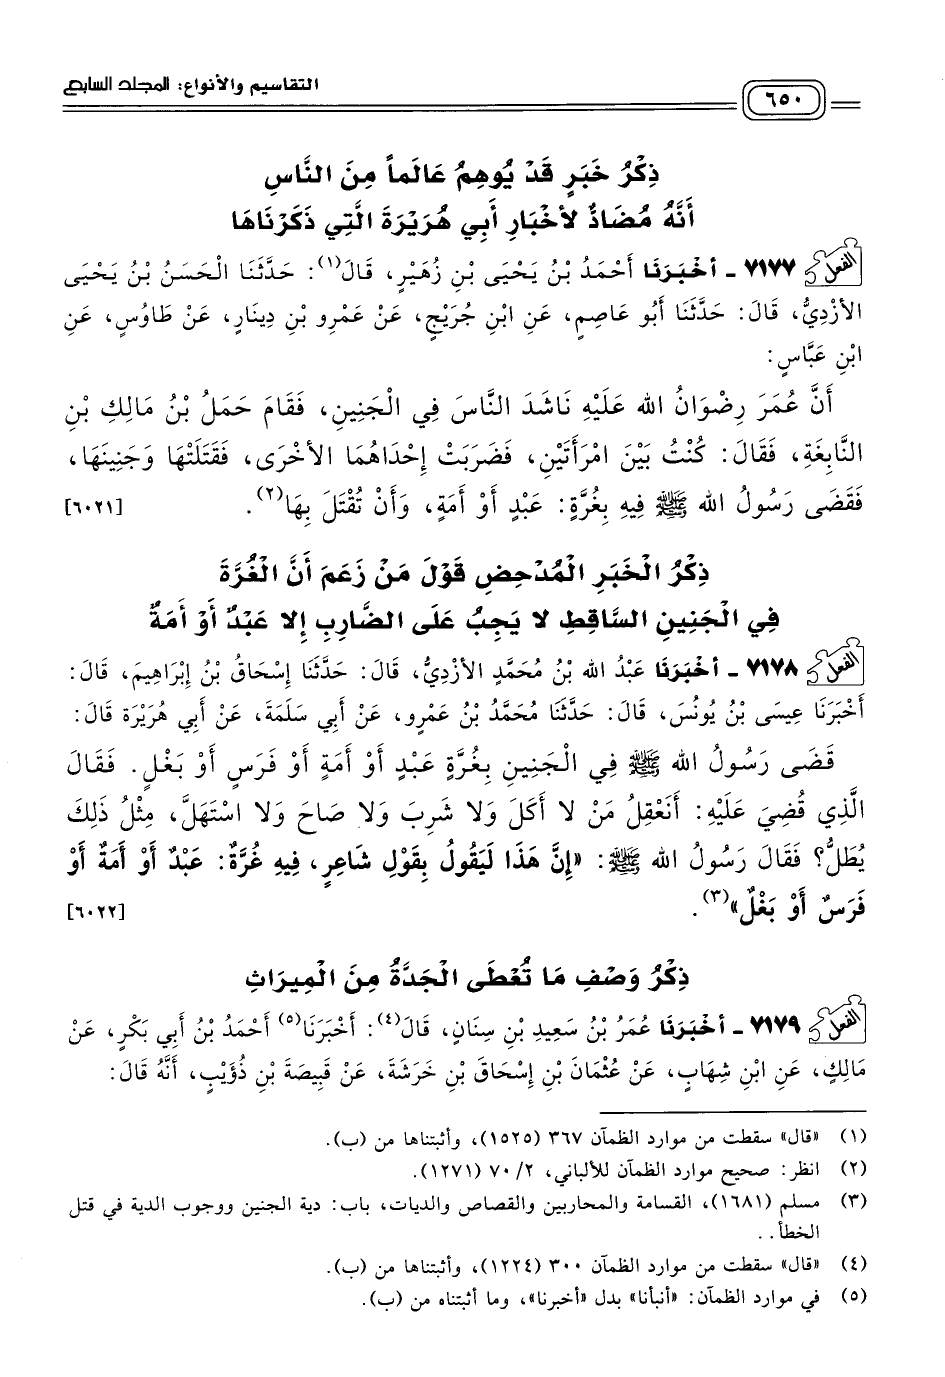 التقاسيم والأنواع: المجلد السابع
٦٥٠
ذِكْرُ خَبَرٍ قَدْ يُوهِمُ عَالَماً مِنَ النَّاسِ
أَنَّهُ مُضَادٌّ لأخْبَارِ أَبِي هُرَيْرَةَ الَّتِي ذَكَرْنَاهَا
الفعل ٧١٧٧ - أخْبَرَنَا أَحْمَدُ بْنُ يَحْيَى بْنِ زُهَيْرٍ، قَالَ(١): حَدَّثَنَا الْحَسَنُ بْنُ يَحْيَى
الأزْدِيُّ، قَالَ: حَدَّثَنَا أَبُو عَاصِمٍ، عَنِ ابْنِ جُرَيْجٍ، عَنْ عَمْرِو بْنِ دِينَارٍ، عَنْ طَاوُسٍ، عَنِ
ابْنِ عَبَّاسٍ:
أَنَّ عُمَرَ رِضْوَانُ الله عَلَيْهِ نَاشَدَ النَّاسَ فِي الْجَنِينِ، فَقَامَ حَمَلُ بْنُ مَالِكِ بْنِ
النَّابِغَةِ، فَقَالَ: كُنْتُ بَيْنَ امْرَأَتَيْنِ، فَضَرَبَتْ إِحْدَاهُمَا الأخْرَى، فَقَتَلَتْهَا وَجَنِينَهَا،
فَقَضَى رَسُولُ الله ﷺ فِيهِ بِغُرَّةٍ: عَبْدٍ أَوْ أَمَةٍ، وَأَنْ تُقْتَلَ بِهَا(٢). [٦٠٢١]
ذِكْرُ الْخَبَرِ الْمُدْحِضِ قَوْلَ مَنْ زَعَمَ أَنَّ الْغُرَّةَ
فِي الْجَنِينِ السَّاقِطِ لا يَجِبُ عَلَى الضَّارِبِ إلا عَبْدٌ أَوْ أَمَةٌ
الفعل ٧١٧٨ - أخْبَرَنَا عَبْدُ الله بْنُ مُحَمَّدٍ الأزْدِيُّ، قَالَ: حَدَّثَنَا إِسْحَاقُ بْنُ إِبْرَاهِيمَ، قَالَ:
أَخْبَرَنَا عِيسَى بْنُ يُونُسَ، قَالَ: حَدَّثَنَا مُحَمَّدُ بْنُ عَمْرٍو، عَنْ أَبِي سَلَمَةَ، عَنْ أَبِي هُرَيْرَةَ قَالَ:
قَضَى رَسُولُ الله ﷺ فِي الْجَنِينِ بِغُرَّةٍ عَبْدٍ أَوْ أَمَةٍ أَوْ فَرَسٍ أَوْ بَغْلٍ. فَقَالَ
الَّذِي قُضِيَ عَلَيْهِ: أَنَعْقِلُ مَنْ لا أَكَلَ وَلا شَرِبَ وَلا صَاحَ وَلا اسْتَهَلَّ، مِثْلُ ذَلِكَ
يُطَلُّ؟ فَقَالَ رَسُولُ الله ﷺ: «إِنَّ هَذَا لَيَقُولُ بِقَوْلِ شَاعِرٍ، فِيهِ غُرَّةٌ: عَبْدٌ أَوْ أَمَةٌ أَوْ
فَرَسٌ أَوْ بَغْلٌ»(٣). [٦٠٢٢]
ذِكْرُ وَصْفِ مَا تُعْطَى الْجَدَّةُ مِنَ الْمِيرَاثِ
الفعل ٧١٧٩ - أخْبَرَنَا عُمَرُ بْنُ سَعِيدِ بْنِ سِنَانٍ، قَالَ(٤): أَخْبَرَنَا(٥) أَحْمَدُ بْنُ أَبِي بَكْرٍ، عَنْ
مَالِكٍ، عَنِ ابْنِ شِهَابٍ، عَنْ عُثْمَانَ بْنِ إِسْحَاقَ بْنِ خَرَشَةَ، عَنْ قَبِيصَةَ بْنِ ذُؤَيْبٍ، أَنَّهُ قَالَ:
(١) «قال» سقطت من موارد الظمآن ٣٦٧ (١٥٢٥)، وأثبتناها من (ب).
(٢) انظر: صحيح موارد الظمآن للألباني، ٢/ ٧٠ (١٢٧١).
(٣) مسلم (١٦٨١)، القسامة والمحاربين والقصاص والديات، باب: دية الجنين ووجوب الدية في قتل
الخطأ..
(٤) «قال» سقطت من موارد الظمآن ٣٠٠ (١٢٢٤)، وأثبتناها من (ب).
(٥) في موارد الظمآن: «أنبأنا» بدل «أخبرنا»، وما أثبتناه من (ب).